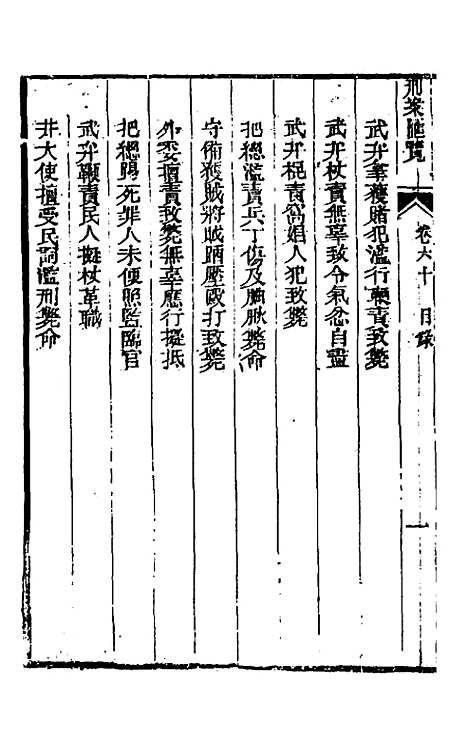 刑案匯覽
卷六十 目錄
武弁拏獲賭犯濫行責致斃
武弁杖責無辜致令氣忿自盡
武弁棍責窩娼人犯致斃
把總濫責兵丁傷及胸肷斃命
守備獲賊將賊踊壓毆打致斃
外委擅責致斃無辜應行擬抵
把總踢死罪人未便照監臨官
武弁鞭責民人擬杖革職
井大使擅受民詞濫刑斃命